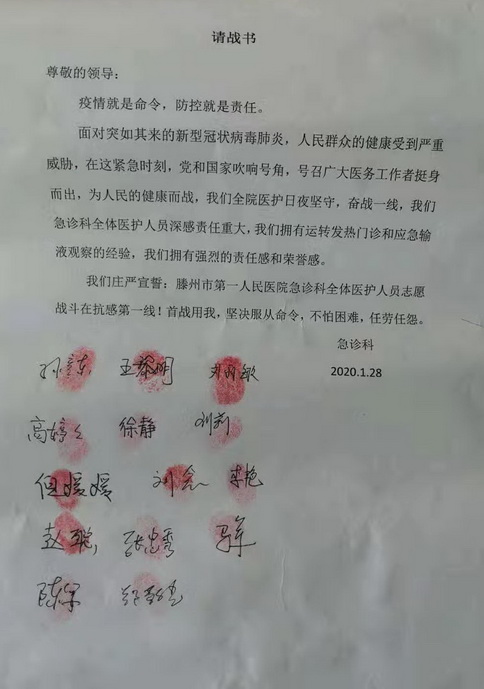 请战书
尊敬的领导：
疫情就是命令，防控就是责任。
面对突如其来的新型冠状病毒肺炎，人民群众的健康受到严重
威胁，在这紧急时刻，党和国家吹响号角，号召广大医务工作者挺身
而出，为人民的健康而战，我们全院医护日夜坚守，奋战一线，我们
急诊科全体医护人员深感责任重大，我们拥有运转发热门诊和应急输
液观察的经验，我们拥有强烈的责任感和荣誉感。
我们庄严宣誓：滕州市第一人民医院急诊科全体医护人员志愿
战斗在抗感第一线！首战用我，坚决服从命令，不怕困难，任劳任怨。
急诊科
2020.1.28
高婷 徐静 刘莉
媛媛 刘念 李艳